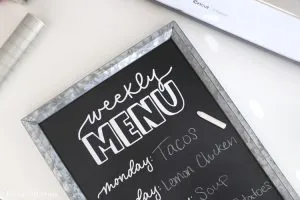 weekly
MENU
monday: Tacos
day: Lemon Chicken
: Soup
tatoes